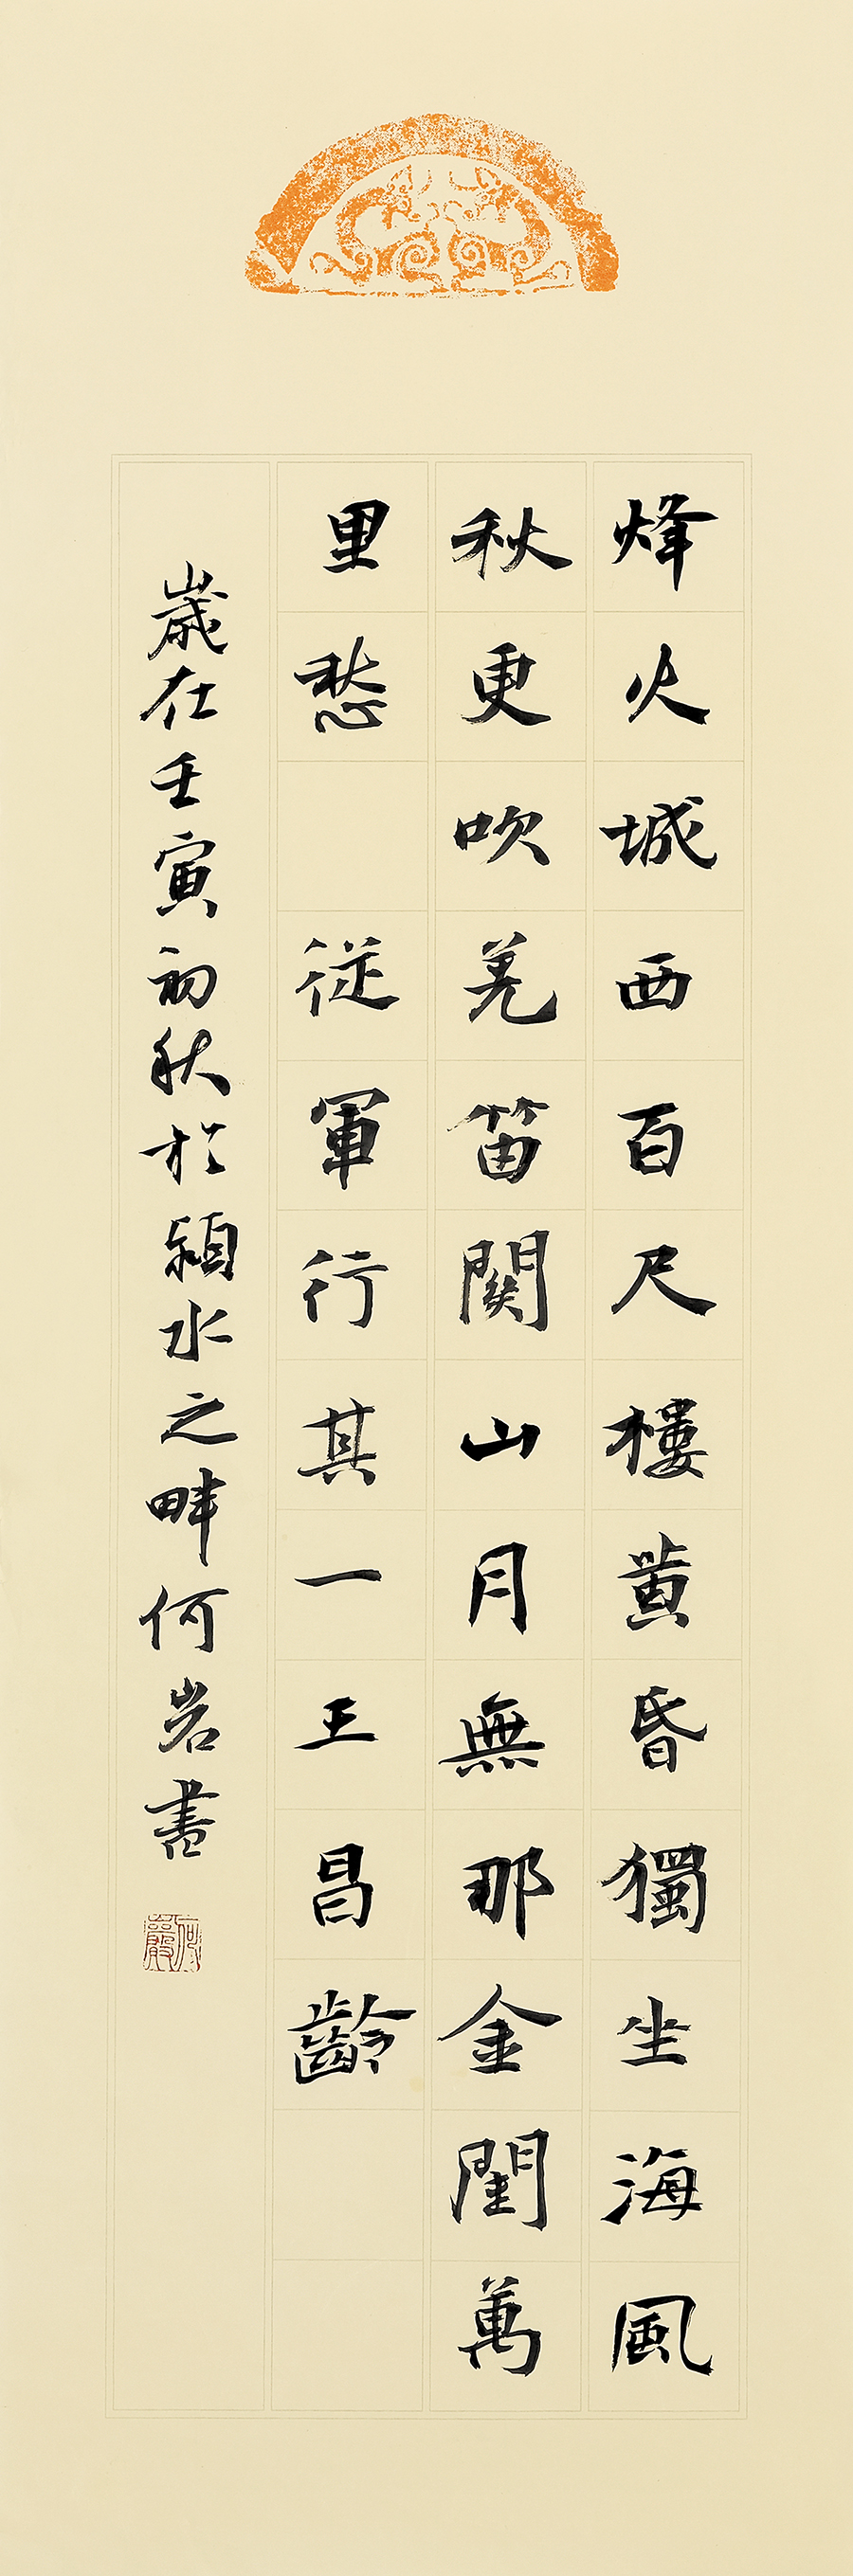 烽火城西百尺樓黃昏獨坐海風
秋更吹羌笛關山月無那金閨萬
里愁 從軍行其一王昌齡
歲在壬寅初秋於潁水之畔何岩書
何巖